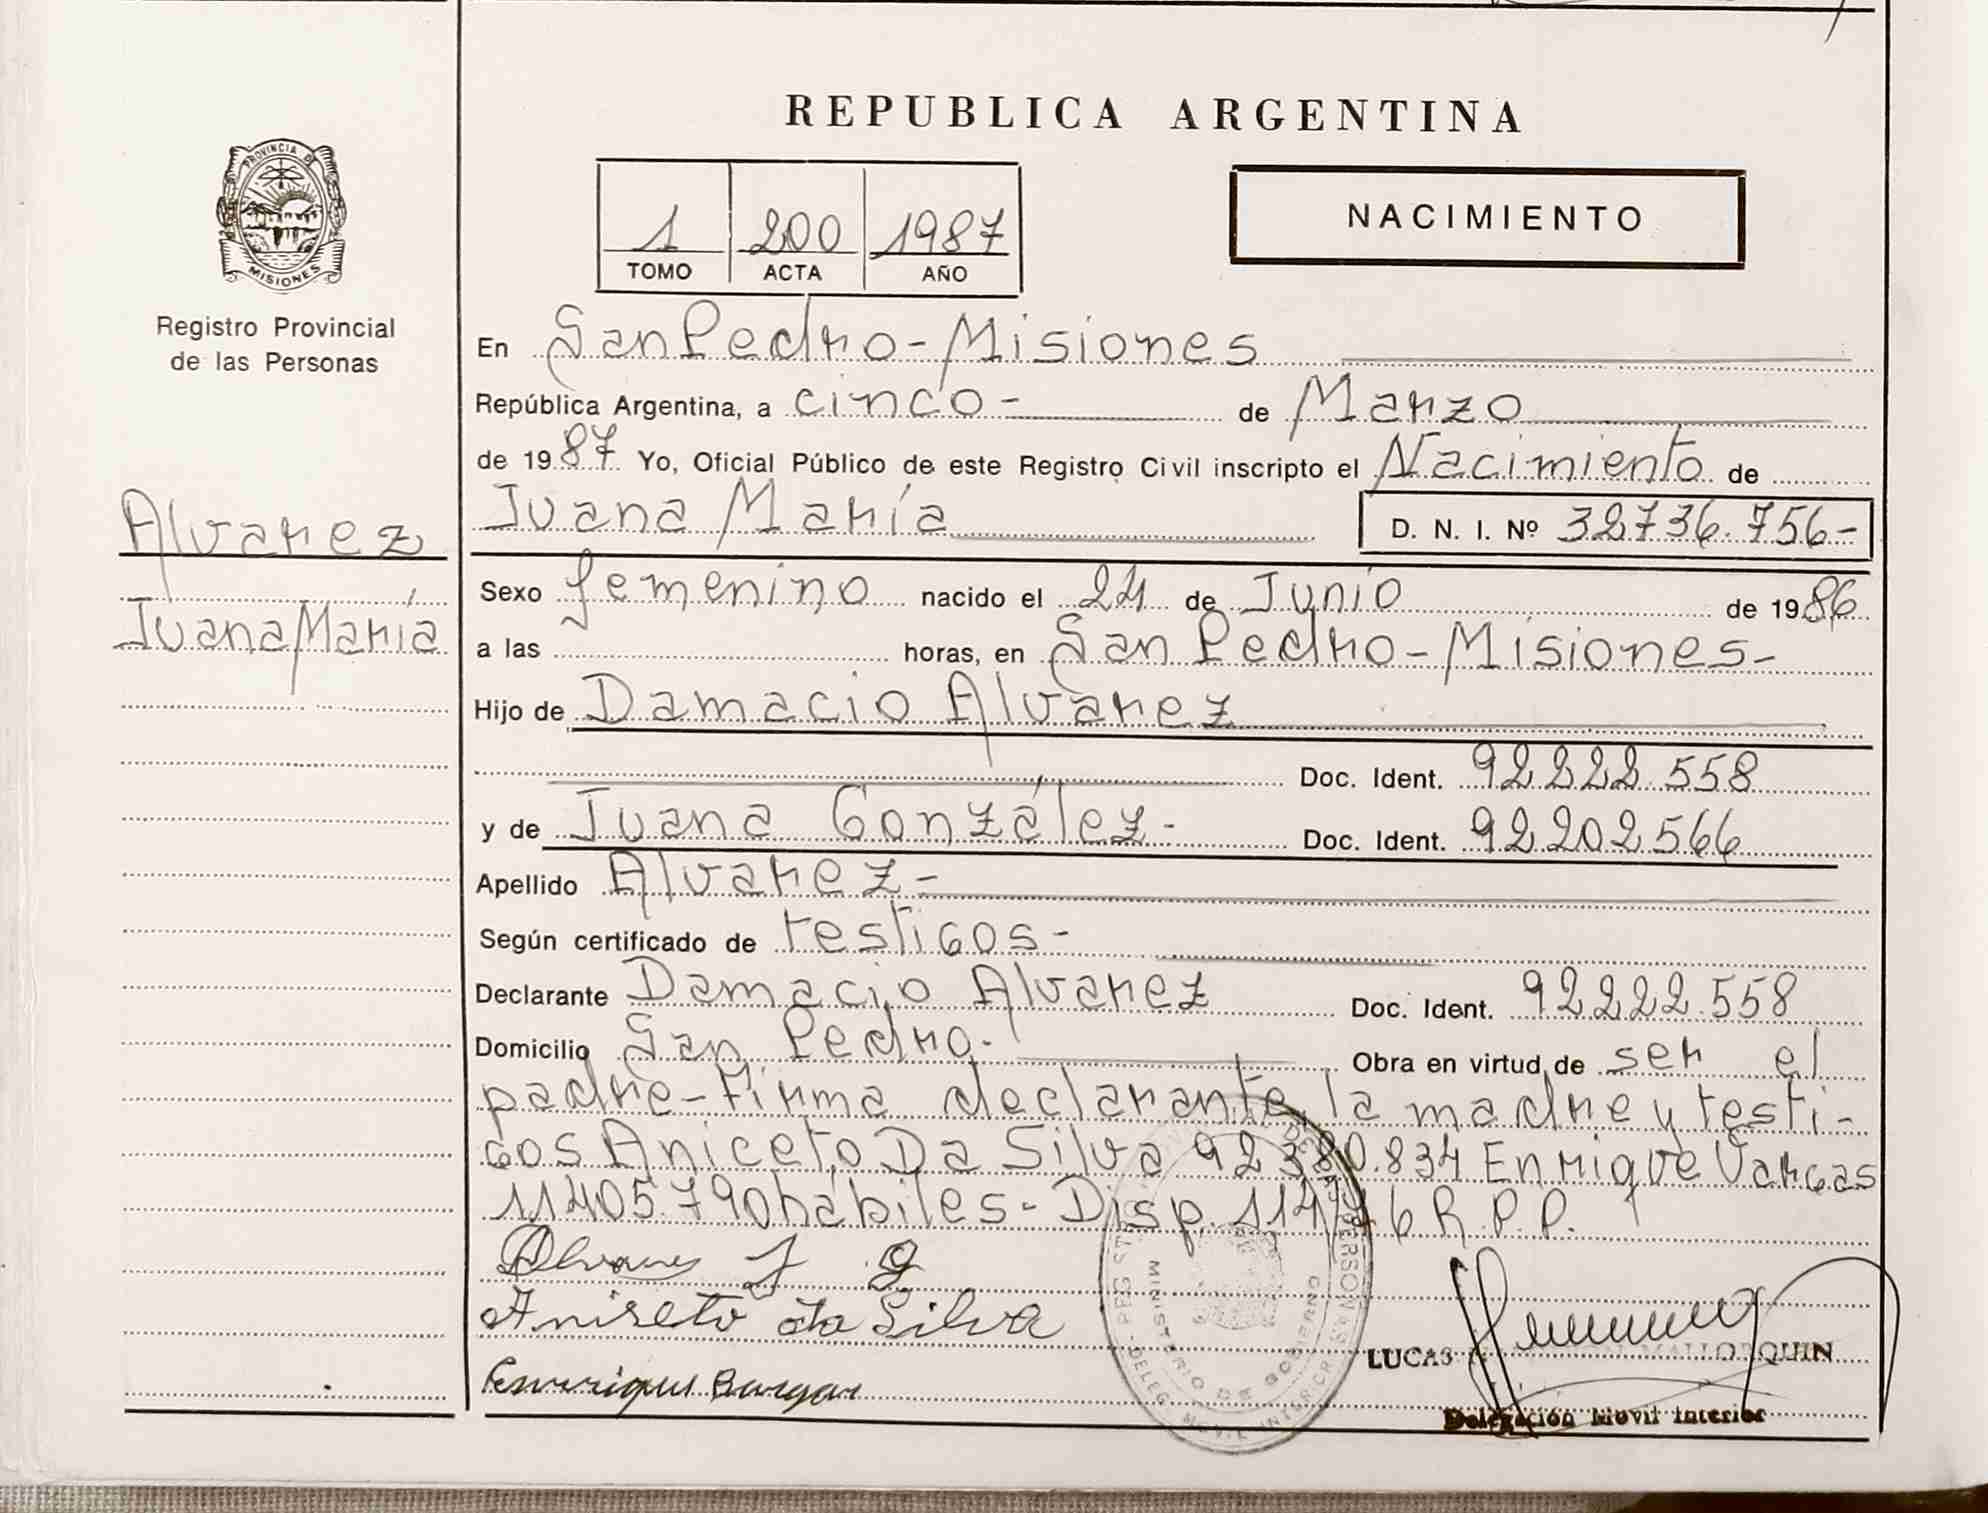 REPUBLICA ARGENTINA
PROVINCIA DE
MISIONES
Registro Provincial
de las Personas
1 200 1987
TOMO ACTA AÑO
NACIMIENTO
En San Pedro - Misiones
República Argentina, a cinco - de Marzo
de 1987 Yo, Oficial Público de este Registro Civil inscripto el Nacimiento de
Juana María D. N. I. Nº 32736.756-
Alvarez
Juana María
Sexo femenino nacido el 24 de Junio de 1986
a las horas, en San Pedro - Misiones -
Hijo de Damacio Alvarez
Doc. Ident. 92222.558
y de Juana González - Doc. Ident. 92202566
Apellido Alvarez -
Según certificado de testigos -
Declarante Damacio Alvarez Doc. Ident. 92222.558
Domicilio San Pedro. Obra en virtud de ser el
padre - Firma declarante, la madre y testi-
gos Aniceto Da Silva 92380.834 Enrique Vargas
11405.790 hábiles - Disp. 114/76 R.P.P.
Alvares J G
Aniseto da Silva
Enrrique Bargas
MINISTERIO DE GOBIERNO
LUCAS MALLORQUIN
Delegación Movil Interior